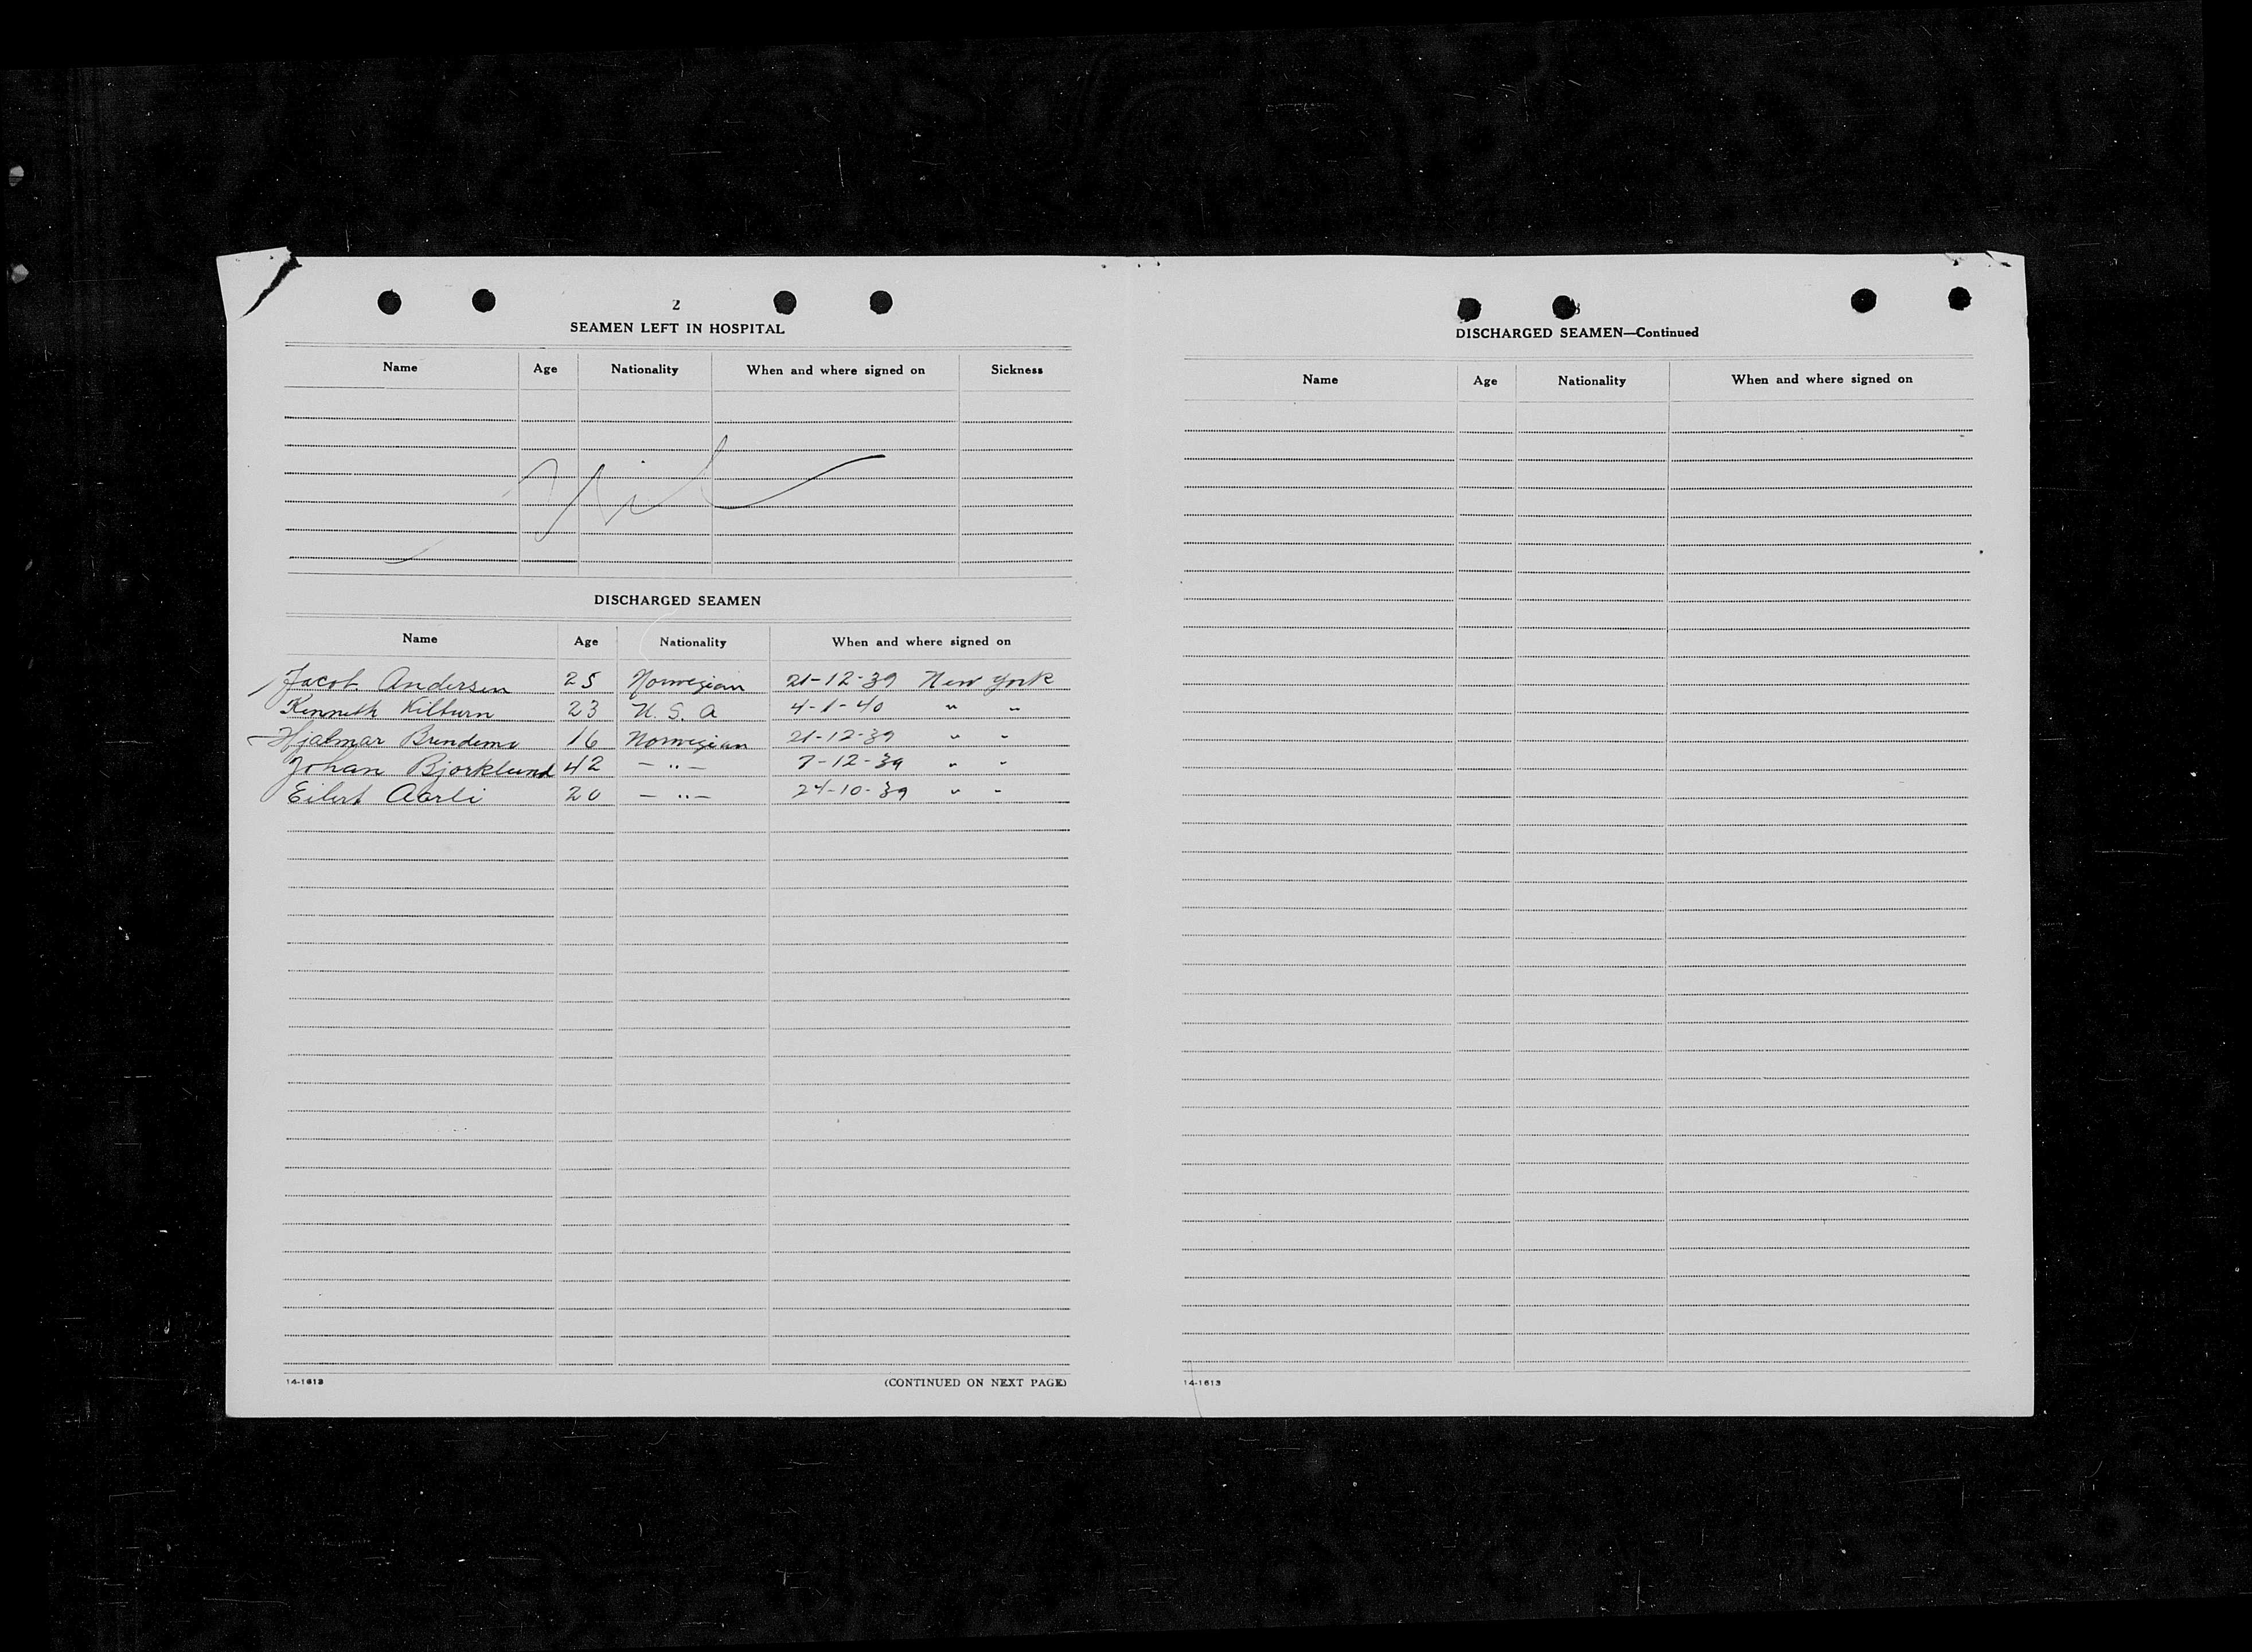 2
SEAMEN LEFT IN HOSPITAL
Name Age Nationality When and where signed on Sickness
Nil
DISCHARGED SEAMEN
Name Age Nationality When and where signed on
Jacob Andersen 25 Norwegian 21-12-39 New York
Kenneth Kilburn 23 U.S.A 4-1-40 " "
Hjalmar 16 Norwegian 21-12-39 " "
Johan Bjorklund 42 — " — 7-12-39 " "
Eilert Aarli 20 — " — 24-10-39 " "
14-1613 (CONTINUED ON NEXT PAGE)
3
DISCHARGED SEAMEN—Continued
Name Age Nationality When and where signed on
14-1613